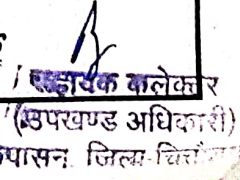 सहायक कलेक्टर
(उपखण्ड अधिकारी)
पासन जिला-चित्तौ